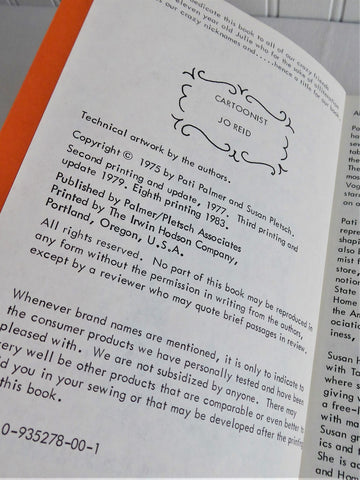 dedicate this book to all of our crazy friends
eleven year old Julie who for the sake of alliteration
us our crazy nicknames and.....hence a title for our book.
CARTOONIST
JO REID
Technical artwork by the authors.
Copyright © 1975 by Pati Palmer and Susan Pletsch.
Second printing and update, 1977. Third printing and
update 1979. Eighth printing 1983.
Published by Palmer/Pletsch Associates
Printed by The Irwin Hodson Company,
Portland, Oregon, U.S.A.
All rights reserved. No part of this book may be reproduced in
any form without the permission in writing from the authors,
except by a reviewer who may quote brief passages in review.
Whenever brand names are mentioned, it is only to indicate to
the consumer products we have personally tested and have been
pleased with. We are not subsidized by anyone. There may
very well be other products that are comparable or even better to
you in your sewing or that may be developed after the printing
this book.
0-935278-00-1
Pati
State
Home
the Am
Susan
with Ta
where
giving
a free-l
with
Susan gr
ics and
She is